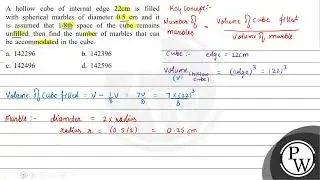 A hollow cube of internal edge 22cm is filled
with spherical marbles of diameter 0.5 cm and it
is assumed that 1/8th space of the cube remains
unfilled, then find the number of marbles that can
be accommodated in the cube.
a. 142296 b. 142396
c. 142496 d. 142596
Key Concept:-
Number of marbles = Volume of Cube filled / Volume of marble
Cube:- edge = 22cm
Volume (V) (hollow cube) = (edge)³ = (22)³
Volume of Cube filled = V - 1/8 V = 7V/8 = 7×(22)³/8
Marble:- diameter = 2 x radius
radius, r = (0.5/2) = 0.25 cm
PW